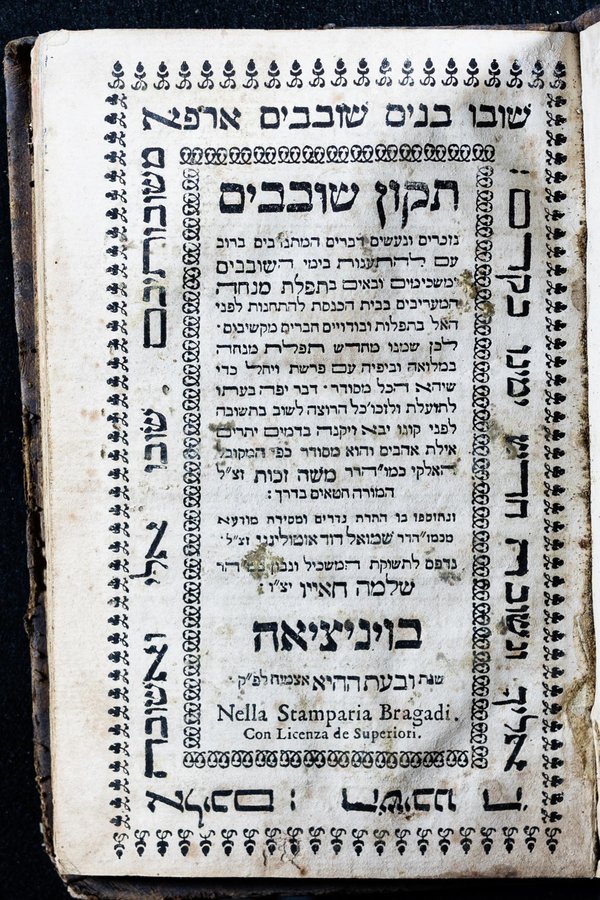 שובו בנים שובבים ארפא
משובותיכם . שובו אלי ואשובה
אליכם : השיבנו ה
אליך ונשובה חדש ימינו כקדם :
תקון שובבים
נזכרים ונעשים דברים המתנדבים ברוב
עם להתענות בימי השובבים
ומשכימים ובאים בתפלת מנחה
המעריבים בבית הכנסת להתחנות לפני
האל בתפלות ובודויים חברים מקשיבים .
לכן שמנו מחדש תפלת מנחה
במלואה וביפיה עם פרשת ויחל כדי
שיהא הכל מסודר . דבר יפה בעתו
לתועלת ולזכו' כל הרוצה לשוב בתשובה
לפני קונו יבא ויקנה בדמים יתרים
אילת אהבים והוא מסודר כפי המקובל
האלקי כמו"הרר משה זכות זצ"ל
המורה חטאים בדרך :
ונתוספו בו התרת נדרים ומסירת מודעא
מכמו"הרר שמואל דוד אוטולינגי זצ"ל .
נדפס לתשוקת המשכיל ונבון
שלמה חאיו יצ"ו
בויניציאה
שנת ובעת ההיא אצמיח לפ"ק
Nella Stamparia Bragadi.
Con Licenza de Superiori.